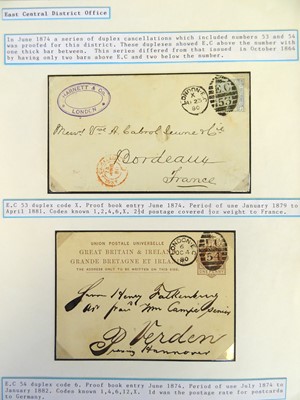 East Central District Office
In June 1874 a series of duplex cancellations which included numbers 53 and 54
was proofed for this district. These duplexes showed E.C above the number with
one thick bar between. This series differed from that issued in October 1864
by having only two bars above E.C and two below the number.
HARNETT & CO.
LONDON
LONDON
X
80
EC
53
Bordeaux
France
E.C 53 duplex code X, Proof book entry June 1874, Period of use January 1879 to
April 1881, Codes known 1,2,4,6,X. 2½d postage covered ½oz weight to France.
UNION POSTALE UNIVERSELLE
GREAT BRITAIN & IRELAND
GRANDE BRETAGNE ET IRLANDE
THE ADDRESS ONLY TO BE WRITTEN ON THIS SIDE.
LONDON
80
Herrn Henry Falkenberg
Verden
Hannover
E.C 54 duplex code 6, Proof book entry June 1874, Period of use July 1874 to
January 1882, Codes known 1,4,6,12,X. 1d was the postage rate for postcards
to Germany.